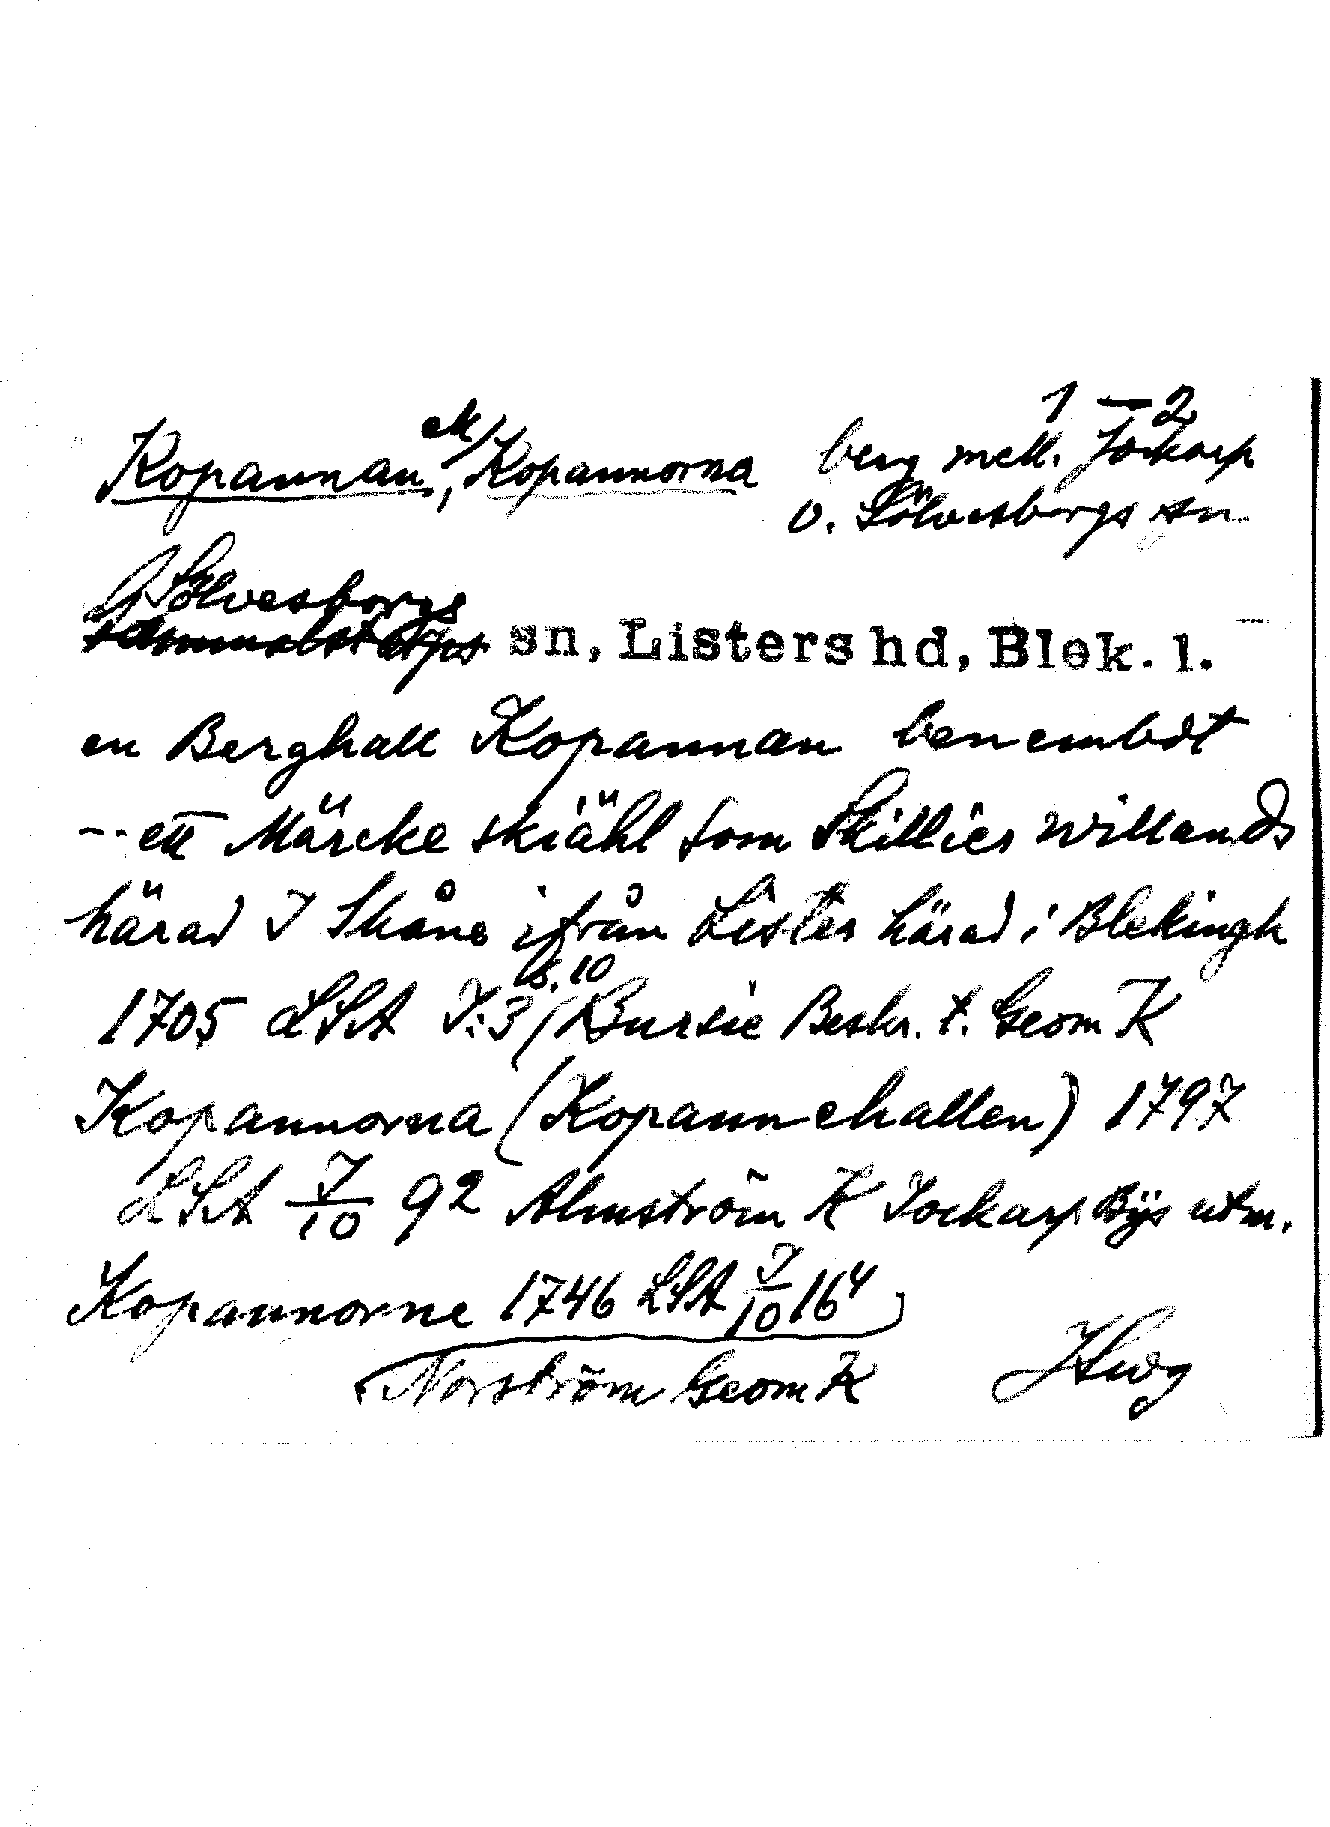 1–2
Kopannan el., Kopannorna berg mell. Jockarp
o. Sölvesborgs sn
Sölvesborgs
sn, Listers hd, Blek. l.
en Berghall Kopannan benembdt
-- ett Märcke skiähl som Skillies Willands
härad I Skåne ifrån Listes härad i Blekingh
1705 LSA I:3 s. 10 / Bursie Beskr. t. Geom K
Kopannorna (Kopannehallen) 1797
LSA I/10 92 Almström K Jockarp Bÿs utm.
Kopannorne 1746 LSA I/10 16⁴
Norström Geom K